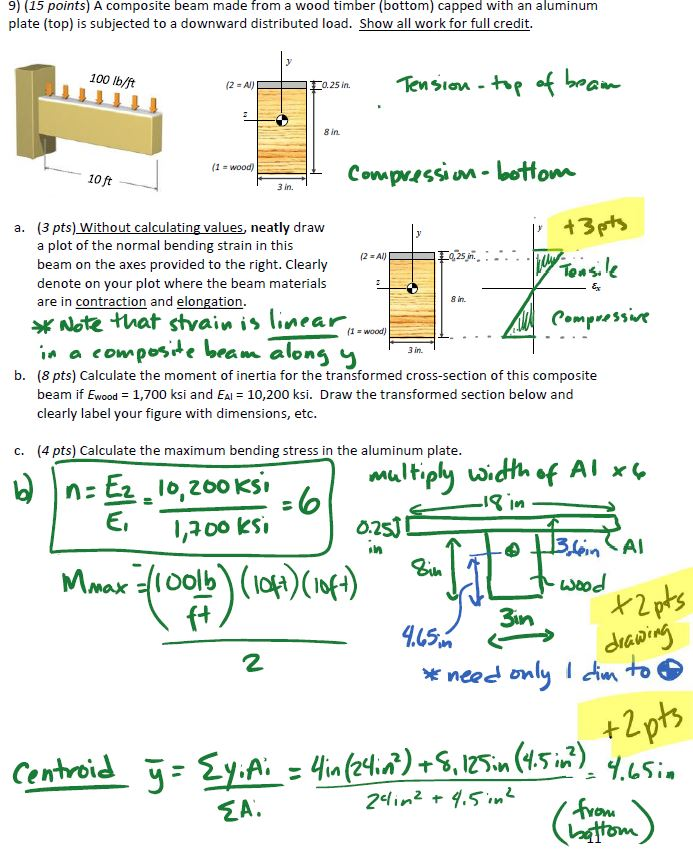 9) (15 points) A composite beam made from a wood timber (bottom) capped with an aluminum
plate (top) is subjected to a downward distributed load. Show all work for full credit.
100 lb/ft
10 ft
y
(2 = Al)
0.25 in.
z
8 in.
(1 = wood)
3 in.
Tension - top of beam
Compression - bottom
a. (3 pts) Without calculating values, neatly draw
a plot of the normal bending strain in this
beam on the axes provided to the right. Clearly
denote on your plot where the beam materials
are in contraction and elongation.
* Note that strain is linear
in a composite beam along y
y
(2 = Al)
0.25 in.
z
8 in.
(1 = wood)
3 in.
+3pts
y
Tensile
εx
Compressive
b. (8 pts) Calculate the moment of inertia for the transformed cross-section of this composite
beam if Ewood = 1,700 ksi and EAl = 10,200 ksi. Draw the transformed section below and
clearly label your figure with dimensions, etc.
c. (4 pts) Calculate the maximum bending stress in the aluminum plate.
b) n = E2/E1 = 10,200 ksi/1,700 ksi = 6
multiply width of Al x 6
18 in
0.25 in
8in
3.6in
Al
wood
4.65in
3in
+2pts
drawing
* need only 1 dim to
Mmax = (100lb/ft)(10ft)(10ft)/2
+2pts
Centroid ȳ = ΣyiAi/ΣAi = 4in(24in²) + 8.125in(4.5in²)/24in² + 4.5in² = 4.65in
(from bottom)
11